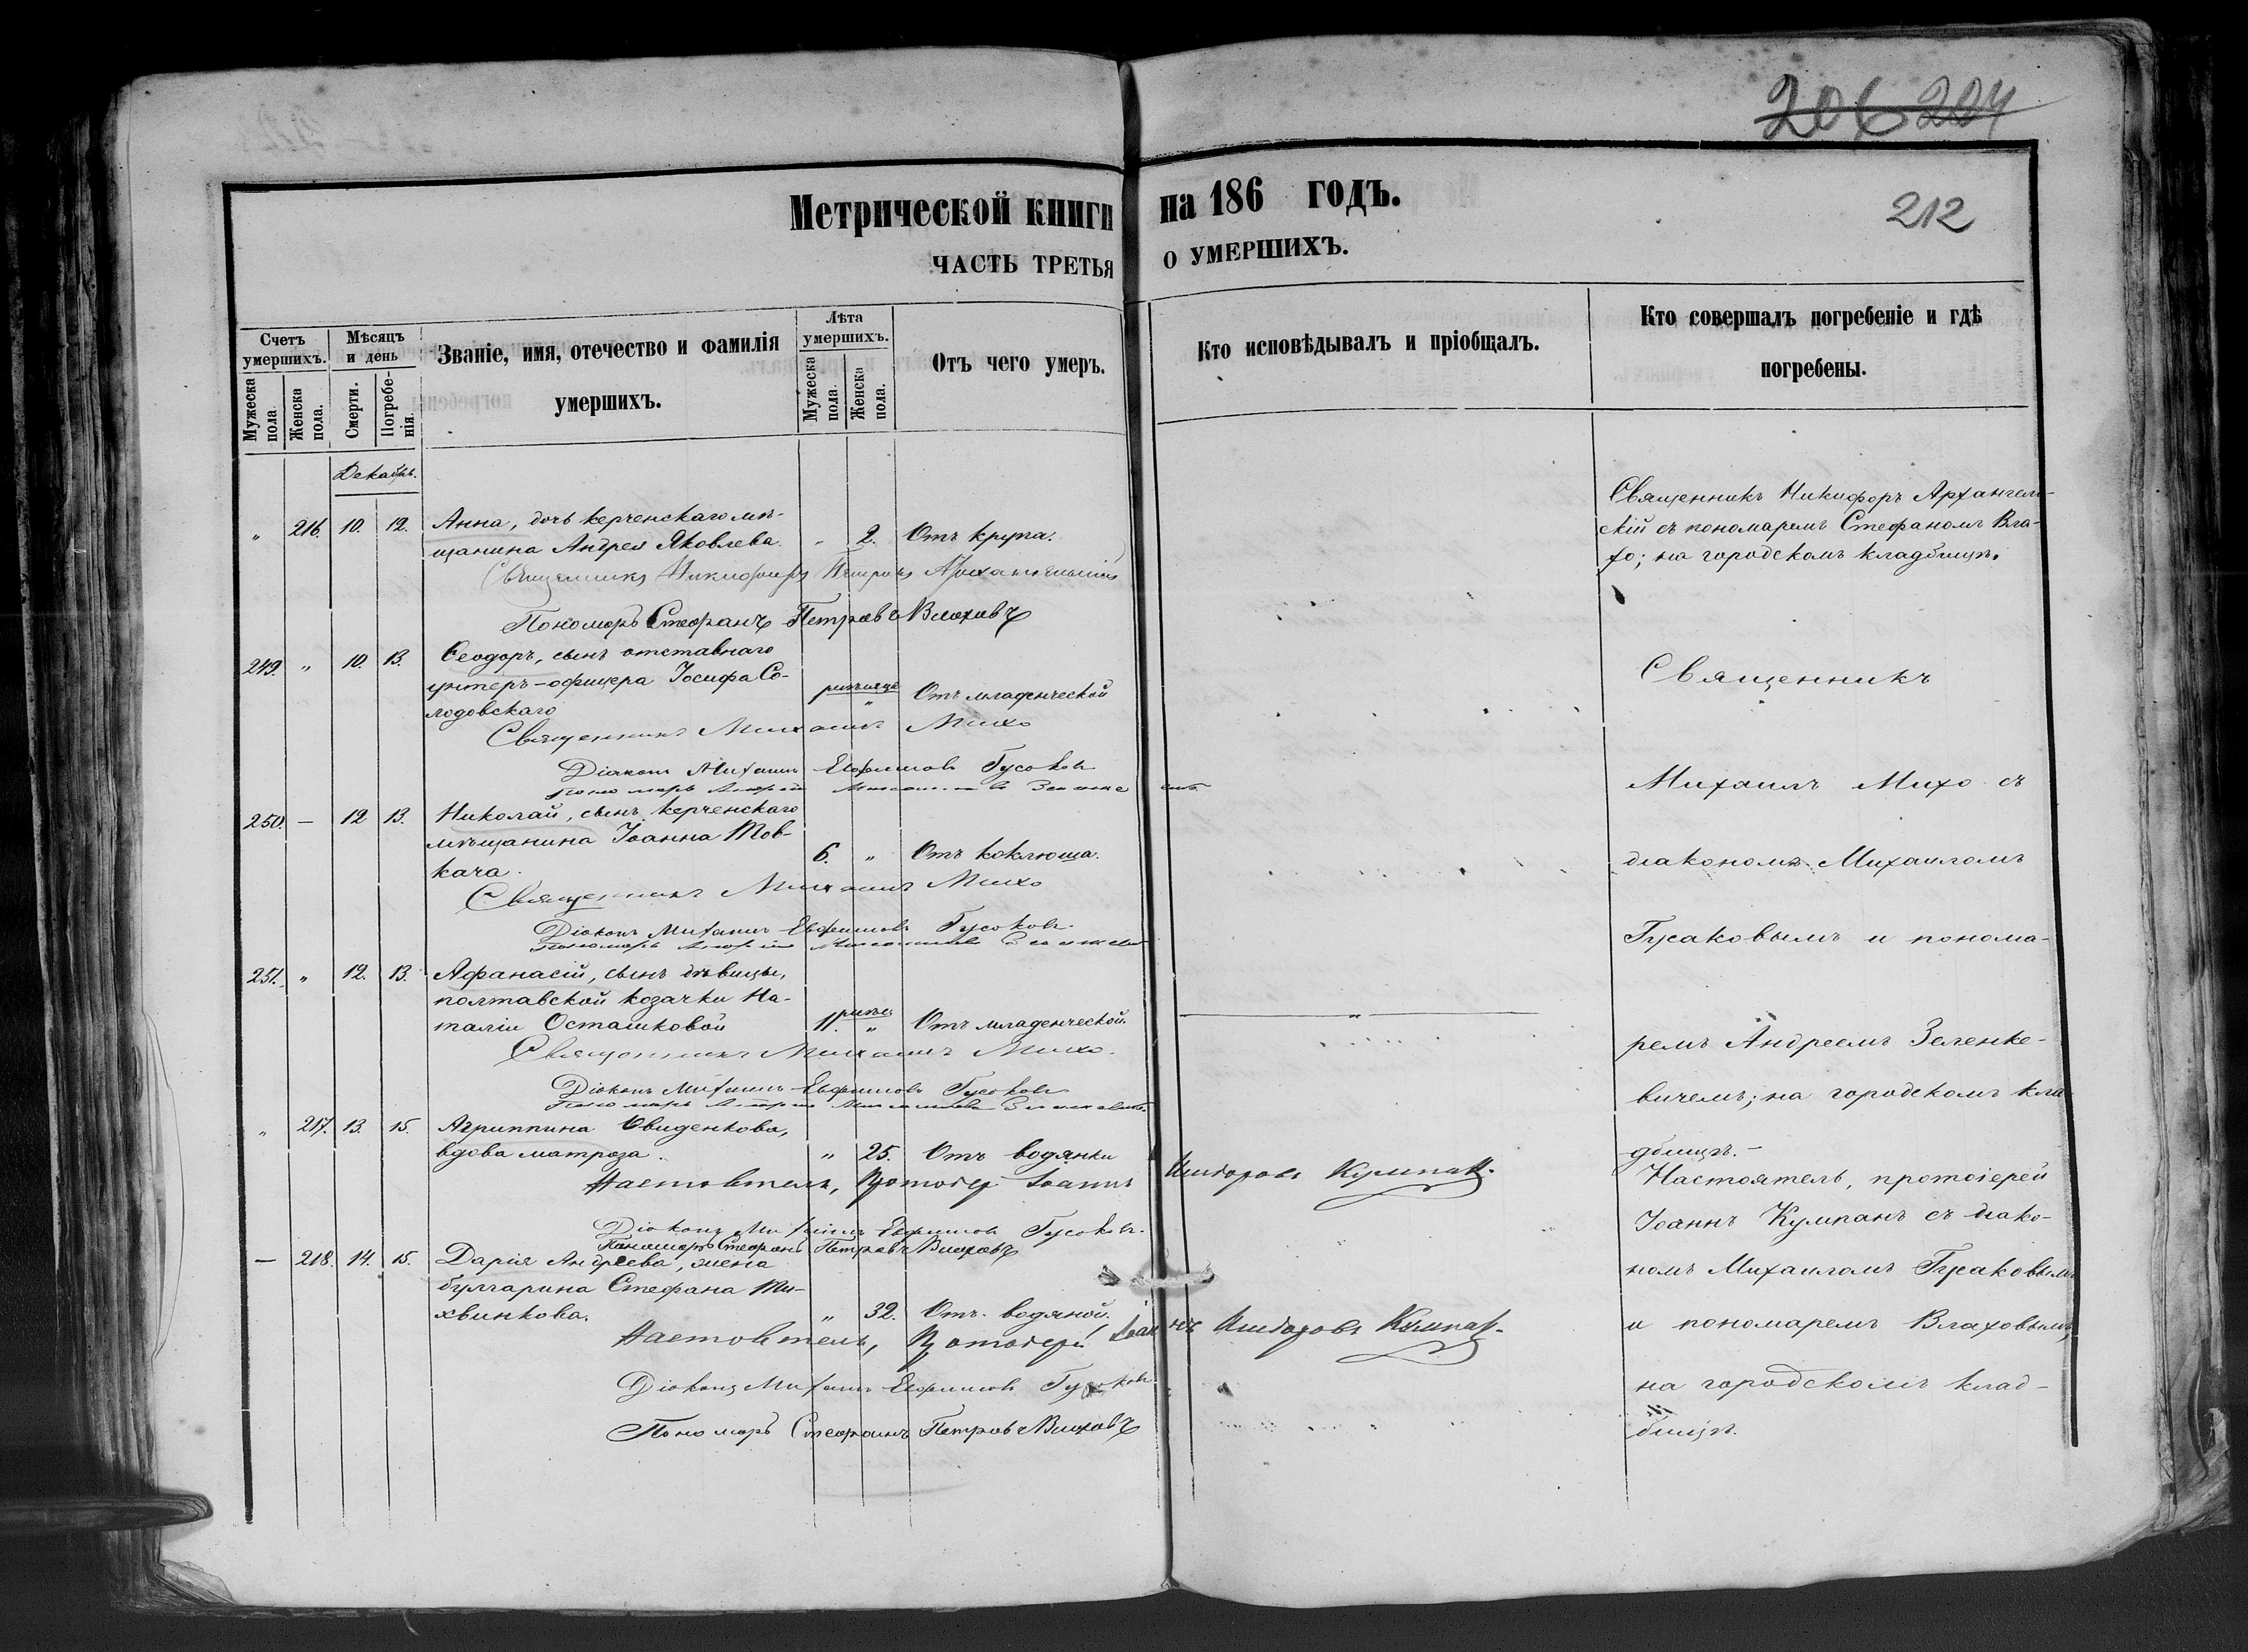 206 204
Метрической книги на 186 годъ.
212
ЧАСТЬ ТРЕТЬЯ О УМЕРШИХЪ.
Счетъ умершихъ.
Мужеска пола.
Женска пола.
Мѣсяцъ и день
Смерти.
Погребенія.
Званіе, имя, отечество и фамилія
умершихъ.
Лѣта умершихъ.
Мужеска пола.
Женска пола.
Отъ чего умеръ.
Кто исповѣдывалъ и пріобщалъ.
Кто совершалъ погребеніе и гдѣ
погребены.
Декабрь.
„ 216. 10. 12. Анна, дочь керченскаго мѣ-
щанина Андрея Яковлева. „ 2. Отъ крупа.
Священникъ Никифоръ Петровъ Архангельскій
Пономарь Стефанъ Петровъ Влаховъ
Священникъ Никифоръ Архангель-
скій съ пономаремъ Стефаномъ Вла-
хо; на городскомъ кладбищѣ.
249. „ 10. 13. Ѳеодоръ, сынъ отставнаго
унтеръ-офицера Іосифа Со-
лодовскаго „ Отъ младенческой
Священникъ Михаилъ Михо
Діаконъ Михаилъ Евфимовъ Гусаковъ
Пономарь Андрей
250. — 12 13. Николай, сынъ керченскаго
мѣщанина Іоанна Тов-
кача. 6. „ Отъ коклюша.
Священникъ Михаилъ Михо
Діаконъ Михаилъ Евфимовъ Гусаковъ
Пономарь Андрей
251. „ 12. 13. Афанасій, сынъ дѣвицы,
полтавской козачки На-
таліи Осташковой 11. „ Отъ младенческой.
Священникъ Михаилъ Михо.
Діаконъ Михаилъ Евфимовъ Гусаковъ
Пономарь Андрей
Священникъ
Михаилъ Михо съ
діакономъ Михаиломъ
Гусаковымъ и понома-
ремъ Андреемъ Зеленке-
вичемъ; на городскомъ кла-
дбищѣ.—
„ 217. 13. 15. Агриппина Свиденкова,
вдова матроза. „ 25. Отъ водянки
Настоятель, Протоіерей Іоаннъ Кумпан.
Діаконъ Михаилъ Евфимовъ Гусаковъ.
Пономарь Стефанъ Петровъ Влаховъ
— 218. 14. 15. Дарія Андреева, жена
булгарина Стефана Ти-
хвинкова. „ 32. Отъ водяной.
Настоятель, Протоіерей Іоаннъ Кумпан.
Діаконъ Михаилъ Евфимовъ Гусаковъ
Пономарь Стефанъ Петровъ Влаховъ
Настоятель, протоіерей
Іоаннъ Кумпанъ съ діако-
номъ Михаиломъ Гусаковымъ
и пономаремъ Влаховымъ,
на городскомъ клад-
бищѣ.